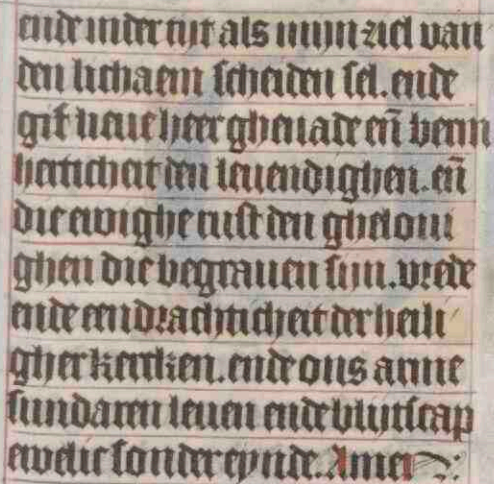 ende inder tijt als mijn ziel van
den lichaem scheiden sel. ende
gif lieue heer ghenade en̄ berm
herticheit den leuendighen. en̄
die ewighe rust den gheloui
ghen die begrauen sijn. vrede
ende eendrachticheit der heili
gher kercken. ende ons arme
sundaren leuen ende blijtscap
ewelic sonder eynde. Amen